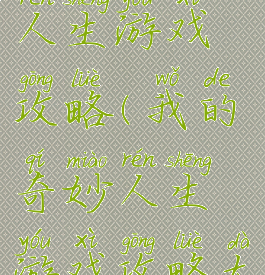 rén shēng yóu xì
人生游戏
gōng lüè wǒ de
攻略(我的
qí miào rén shēng
奇妙人生
yóu xì gōng lüè dà
游戏攻略大